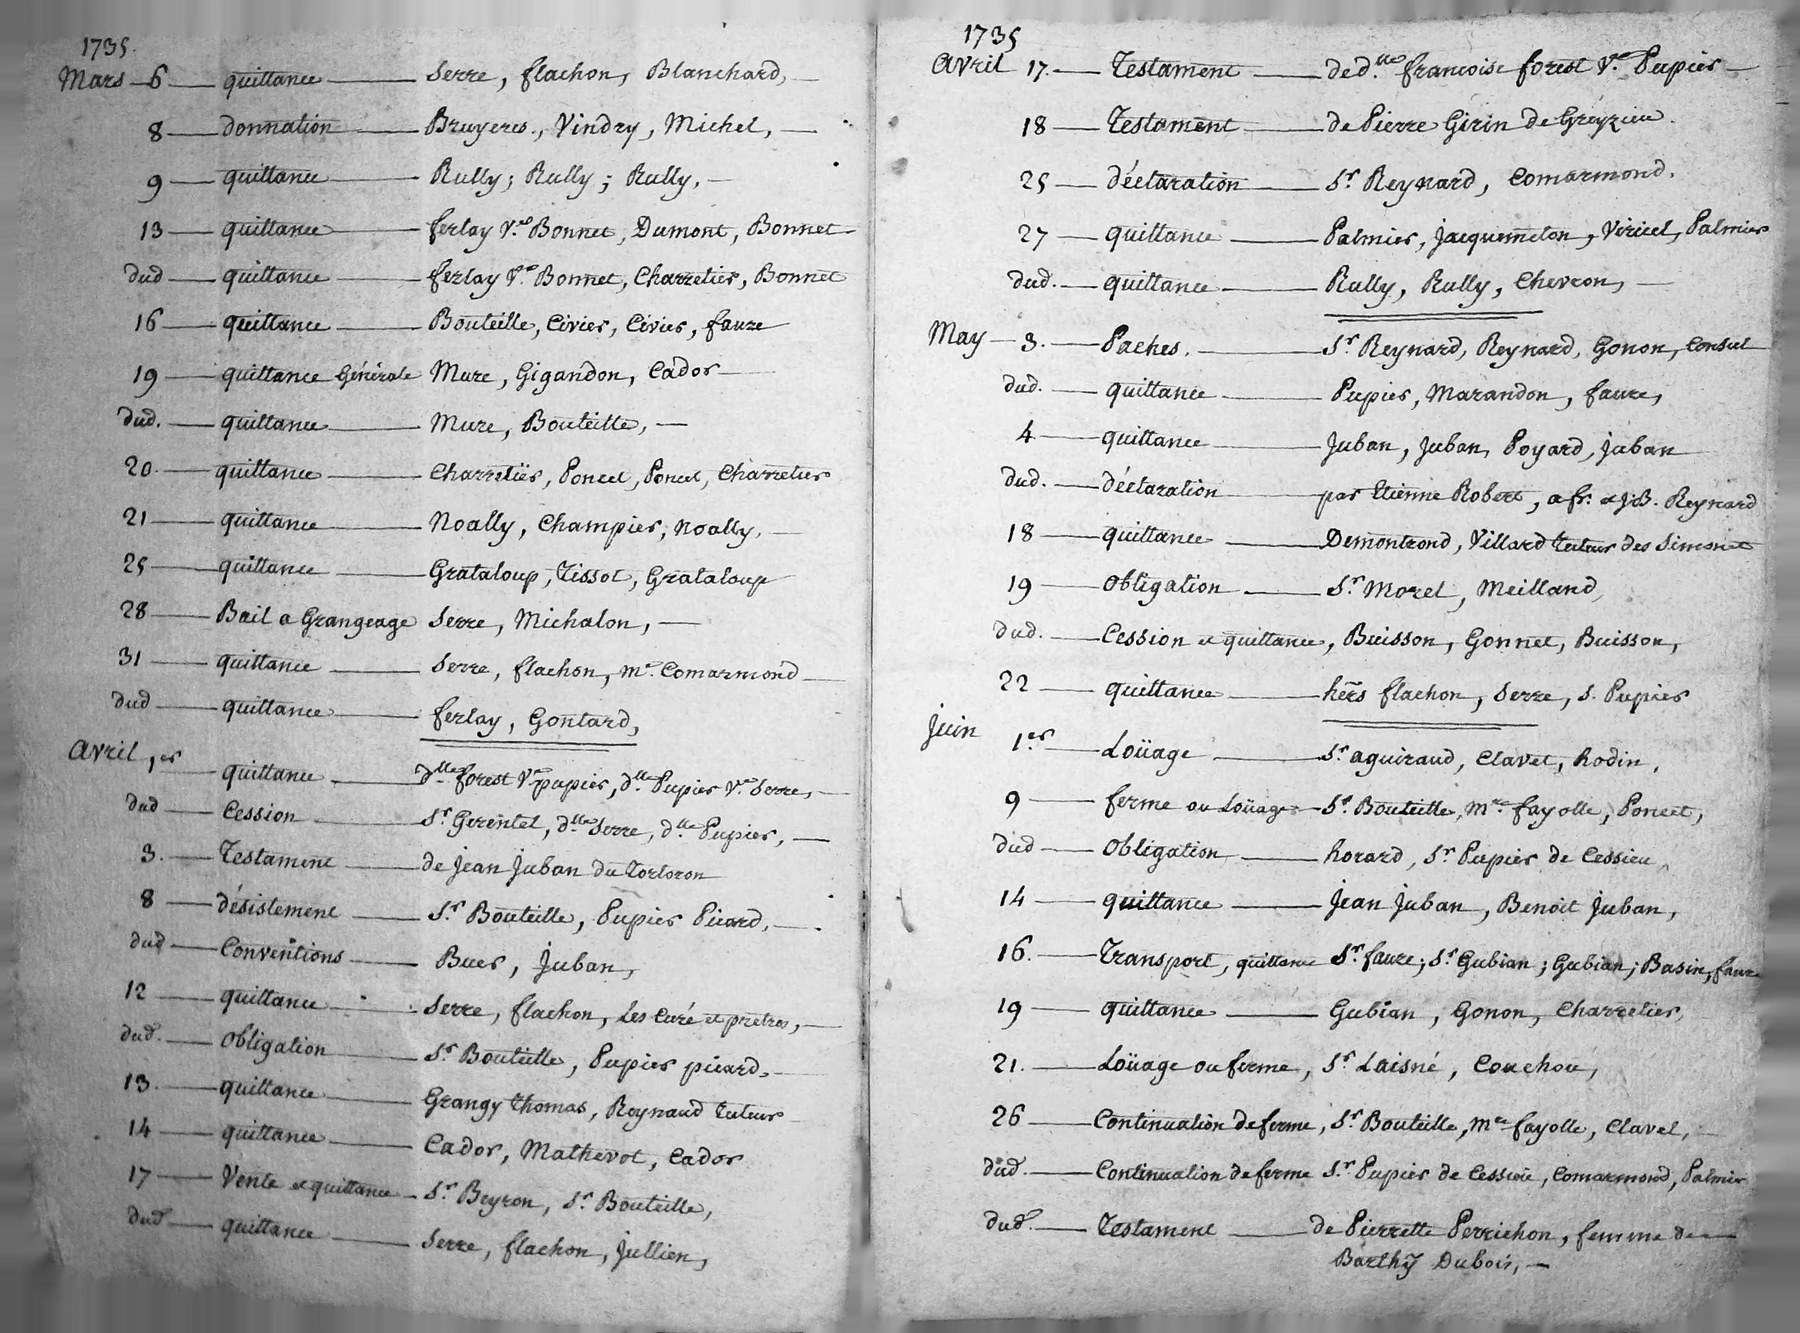 1735.
Mars 6 quittance Serre, flachon, Blanchard,
8 donnation Bruyeres, Vindry, Michel,
9 quittance Rully; Rully; Rully,
13 quittance ferlay Vve Bonnet, Dumont, Bonnet
dud quittance ferlay Vve Bonnet, Charretier, Bonnet
16 quittance Bouteille, Civier, Civier, faure
19 quittance Générale Mure, Gigandon, Cador
dud. quittance Mure, Bouteille,
20. quittance Charretiër, Poncet, Poncet, Charretier
21 quittance Noally, Champier, Noally,
25 quittance Grataloup, Tissot, Grataloup
28 Bail a Grangeage Serre, Michalon,
31 quittance Serre, flachon, Mr Comarmond
dud quittance ferlay, Gontard,
Avril 1er quittance dlle forest Vve pupier, dlle Pupier Vve Serre,
dud Cession Sr Gerentet, dlle Serre, dlle Pupier,
3. Testament de Jean Juban du Torloron
8 désistement Sr Bouteille, Pupier Picard,
dud Conventions Buer, Juban,
12 quittance Serre, flachon, Les Curé et pretres,
dud. Obligation Sr Bouteille, Pupier picard.
13. quittance Grangy Thomas, Reynaud tuteur
14 quittance Cador, Mathevot, Cador
17 Vente et quittance Sr Beyron, Sr Bouteille,
dud quittance Serre, flachon, Jullien,
1735
Avril 17. Testament de dlle francoise forest Vve Pupier
18 Testament de Pierre Girin de Greyzieu.
25 déclaration Sr Reynard, Comarmond.
27 quittance Palmier, Jacquemeton, Viricel, Palmier
dud. quittance Rully, Rully, Chevron,
May 3. Paches. Sr Reynard, Reynard, Gonon, Consul
dud. quittance Pupier, Marandon, faure,
4 quittance Juban, Juban, Poyard, Juban
dud. déclaration par Etienne Robert, a fr. et J.B. Reynard
18 quittance Demontrond, Villard tuteur des Simonet
19 Obligation Sr Morel, Meilland,
dud. Cession et quittance, Buisson, Gonnet, Buisson,
22 quittance hers flachon, Serre, S. Pupier
Juin 1er Loüage Sr aguiraud, Clavel, Rodin,
9 ferme ou Loüage Sr Bouteille, Mre fayolle, Poncet,
dud Obligation horard, Sr Pupier de Cessieu,
14 quittance Jean Juban, Benoit Juban,
16. Transport, quittance Sr faure; Sr Gubian; Gubian; Basin, faure
19 quittance Gubian, Gonon, Charretier,
21. Loüage ou ferme, Sr Laisné, Couchou,
26 Continuation de ferme, Sr Bouteille, Mre fayolle, Clavel,
dud. Continuation de ferme Sr Pupier de Cessieu, Comarmond, Palmier
dud. Testament de Pierrette Perrichon, femme de
Barthy Dubois,